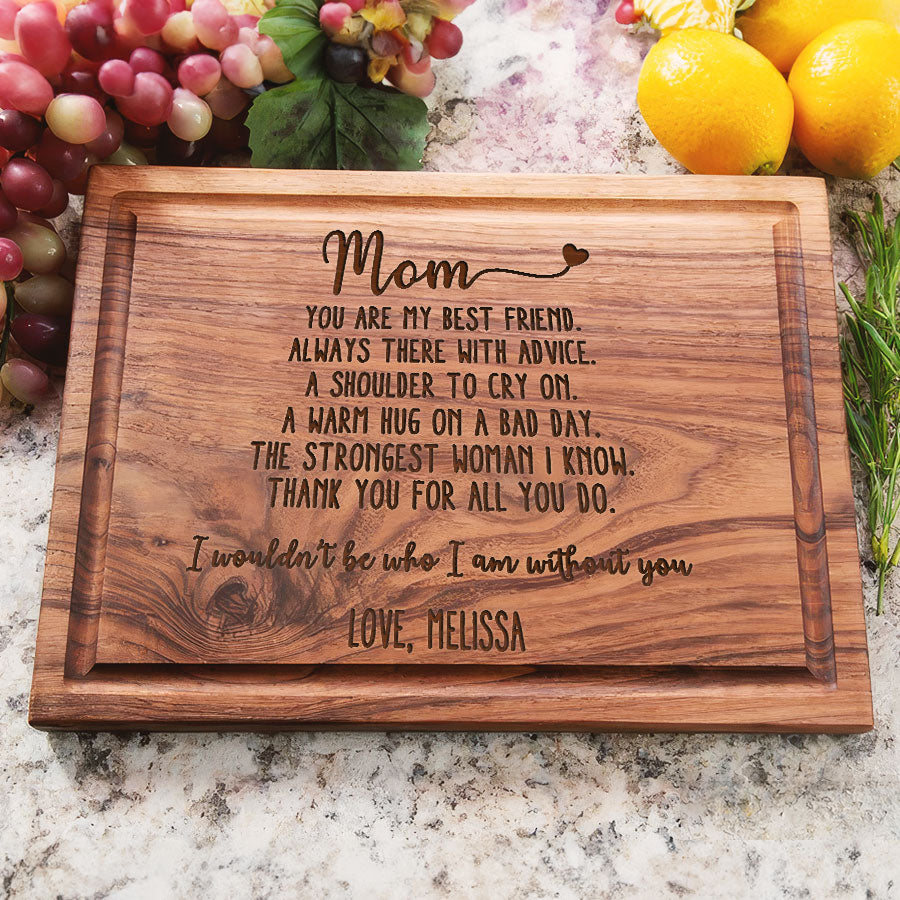 Mom
YOU ARE MY BEST FRIEND.
ALWAYS THERE WITH ADVICE.
A SHOULDER TO CRY ON.
A WARM HUG ON A BAD DAY.
THE STRONGEST WOMAN I KNOW.
THANK YOU FOR ALL YOU DO.
I wouldn't be who I am without you
LOVE, MELISSA